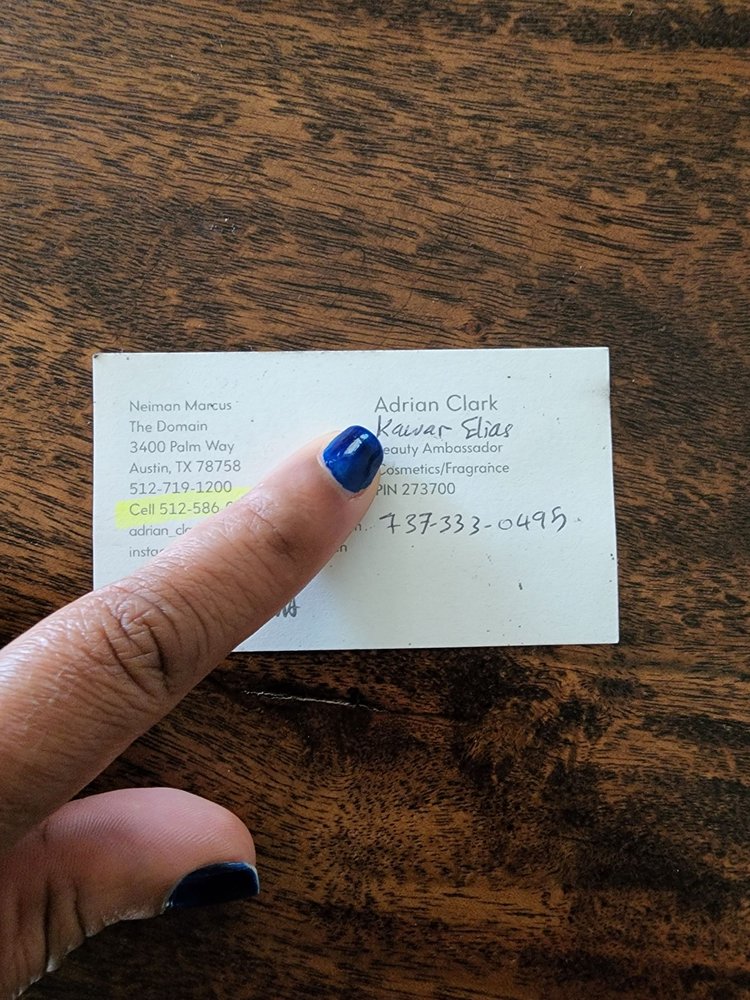 Neiman Marcus
The Domain
3400 Palm Way
Austin, TX 78758
512-719-1200
Cell 512-586
Adrian Clark
Kawar Elias
Beauty Ambassador
Cosmetics/Fragrance
PIN 273700
737-333-0495